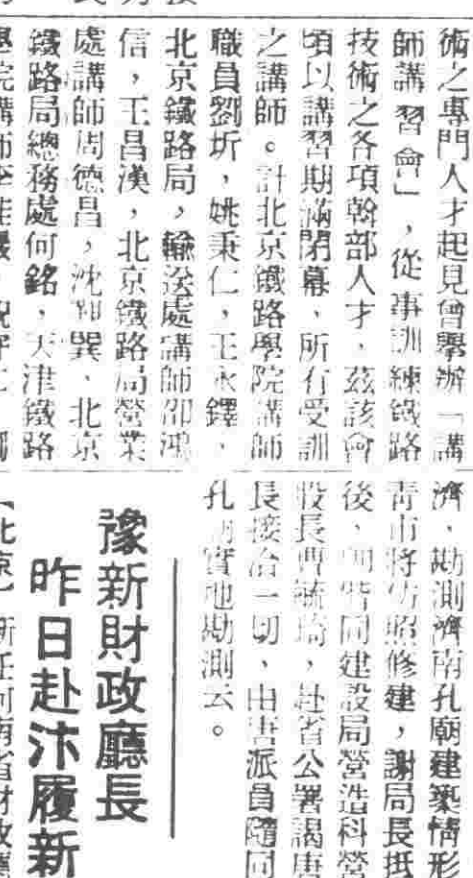 術之專門人才起見曾舉辦「講
師講習會」,從事訓練鐵路
技術之各項幹部人才,茲該會
頃以講習期滿閉幕,所有受訓
之講師。計北京鐵路學院講師
職員劉圻,姚秉仁,王永鐸,
北京鐵路局,輸送處講師邵鴻
信,王昌漢,北京鐵路局營業
處講師周德昌,沈巽、北京
鐵路局總務處何銘,天津鐵路
學院講師
濟,勘測濟南孔廟建築情形
青市將仿照修建,謝局長抵
後,同建設局營造科營
股長曹毓琦,赴省公署謁唐
長接洽一切,由唐派員隨同
孔廟實地勘測云。
豫新財政廳長
昨日赴汴履新
【北京】新任河南省財政廳